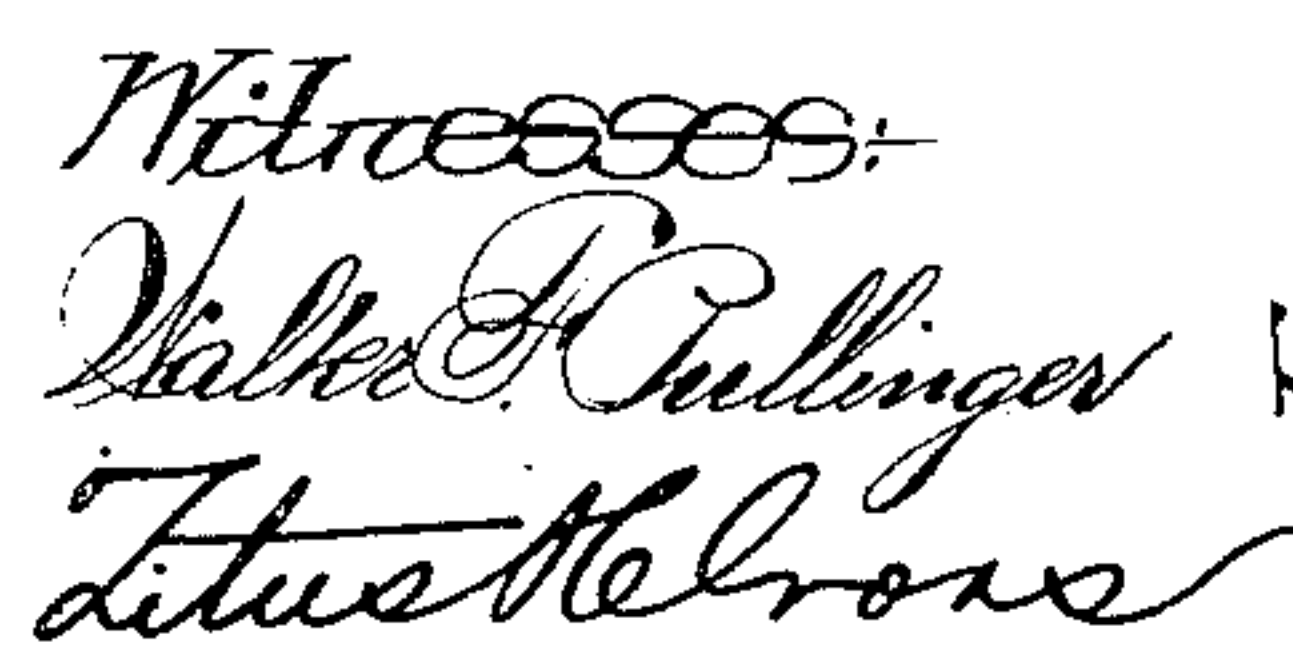 Witnesses:-
Walter F. Pullinger
Titus H. Irons